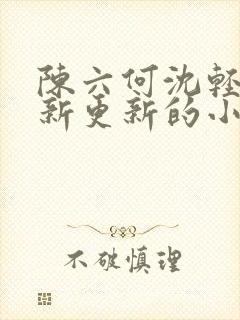 陳六何沈輕
新更新的小
不破慎理